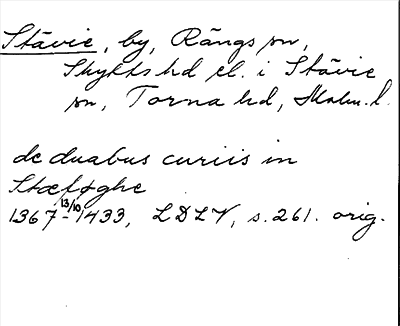 Stävie, by, Rängs sn,
Skyttshd el. i Stävie
sn, Torna hd, Malm.l.
de duabus curiis in
Stæføghe
1367-13/10 1433, LDLV, s.261. orig.